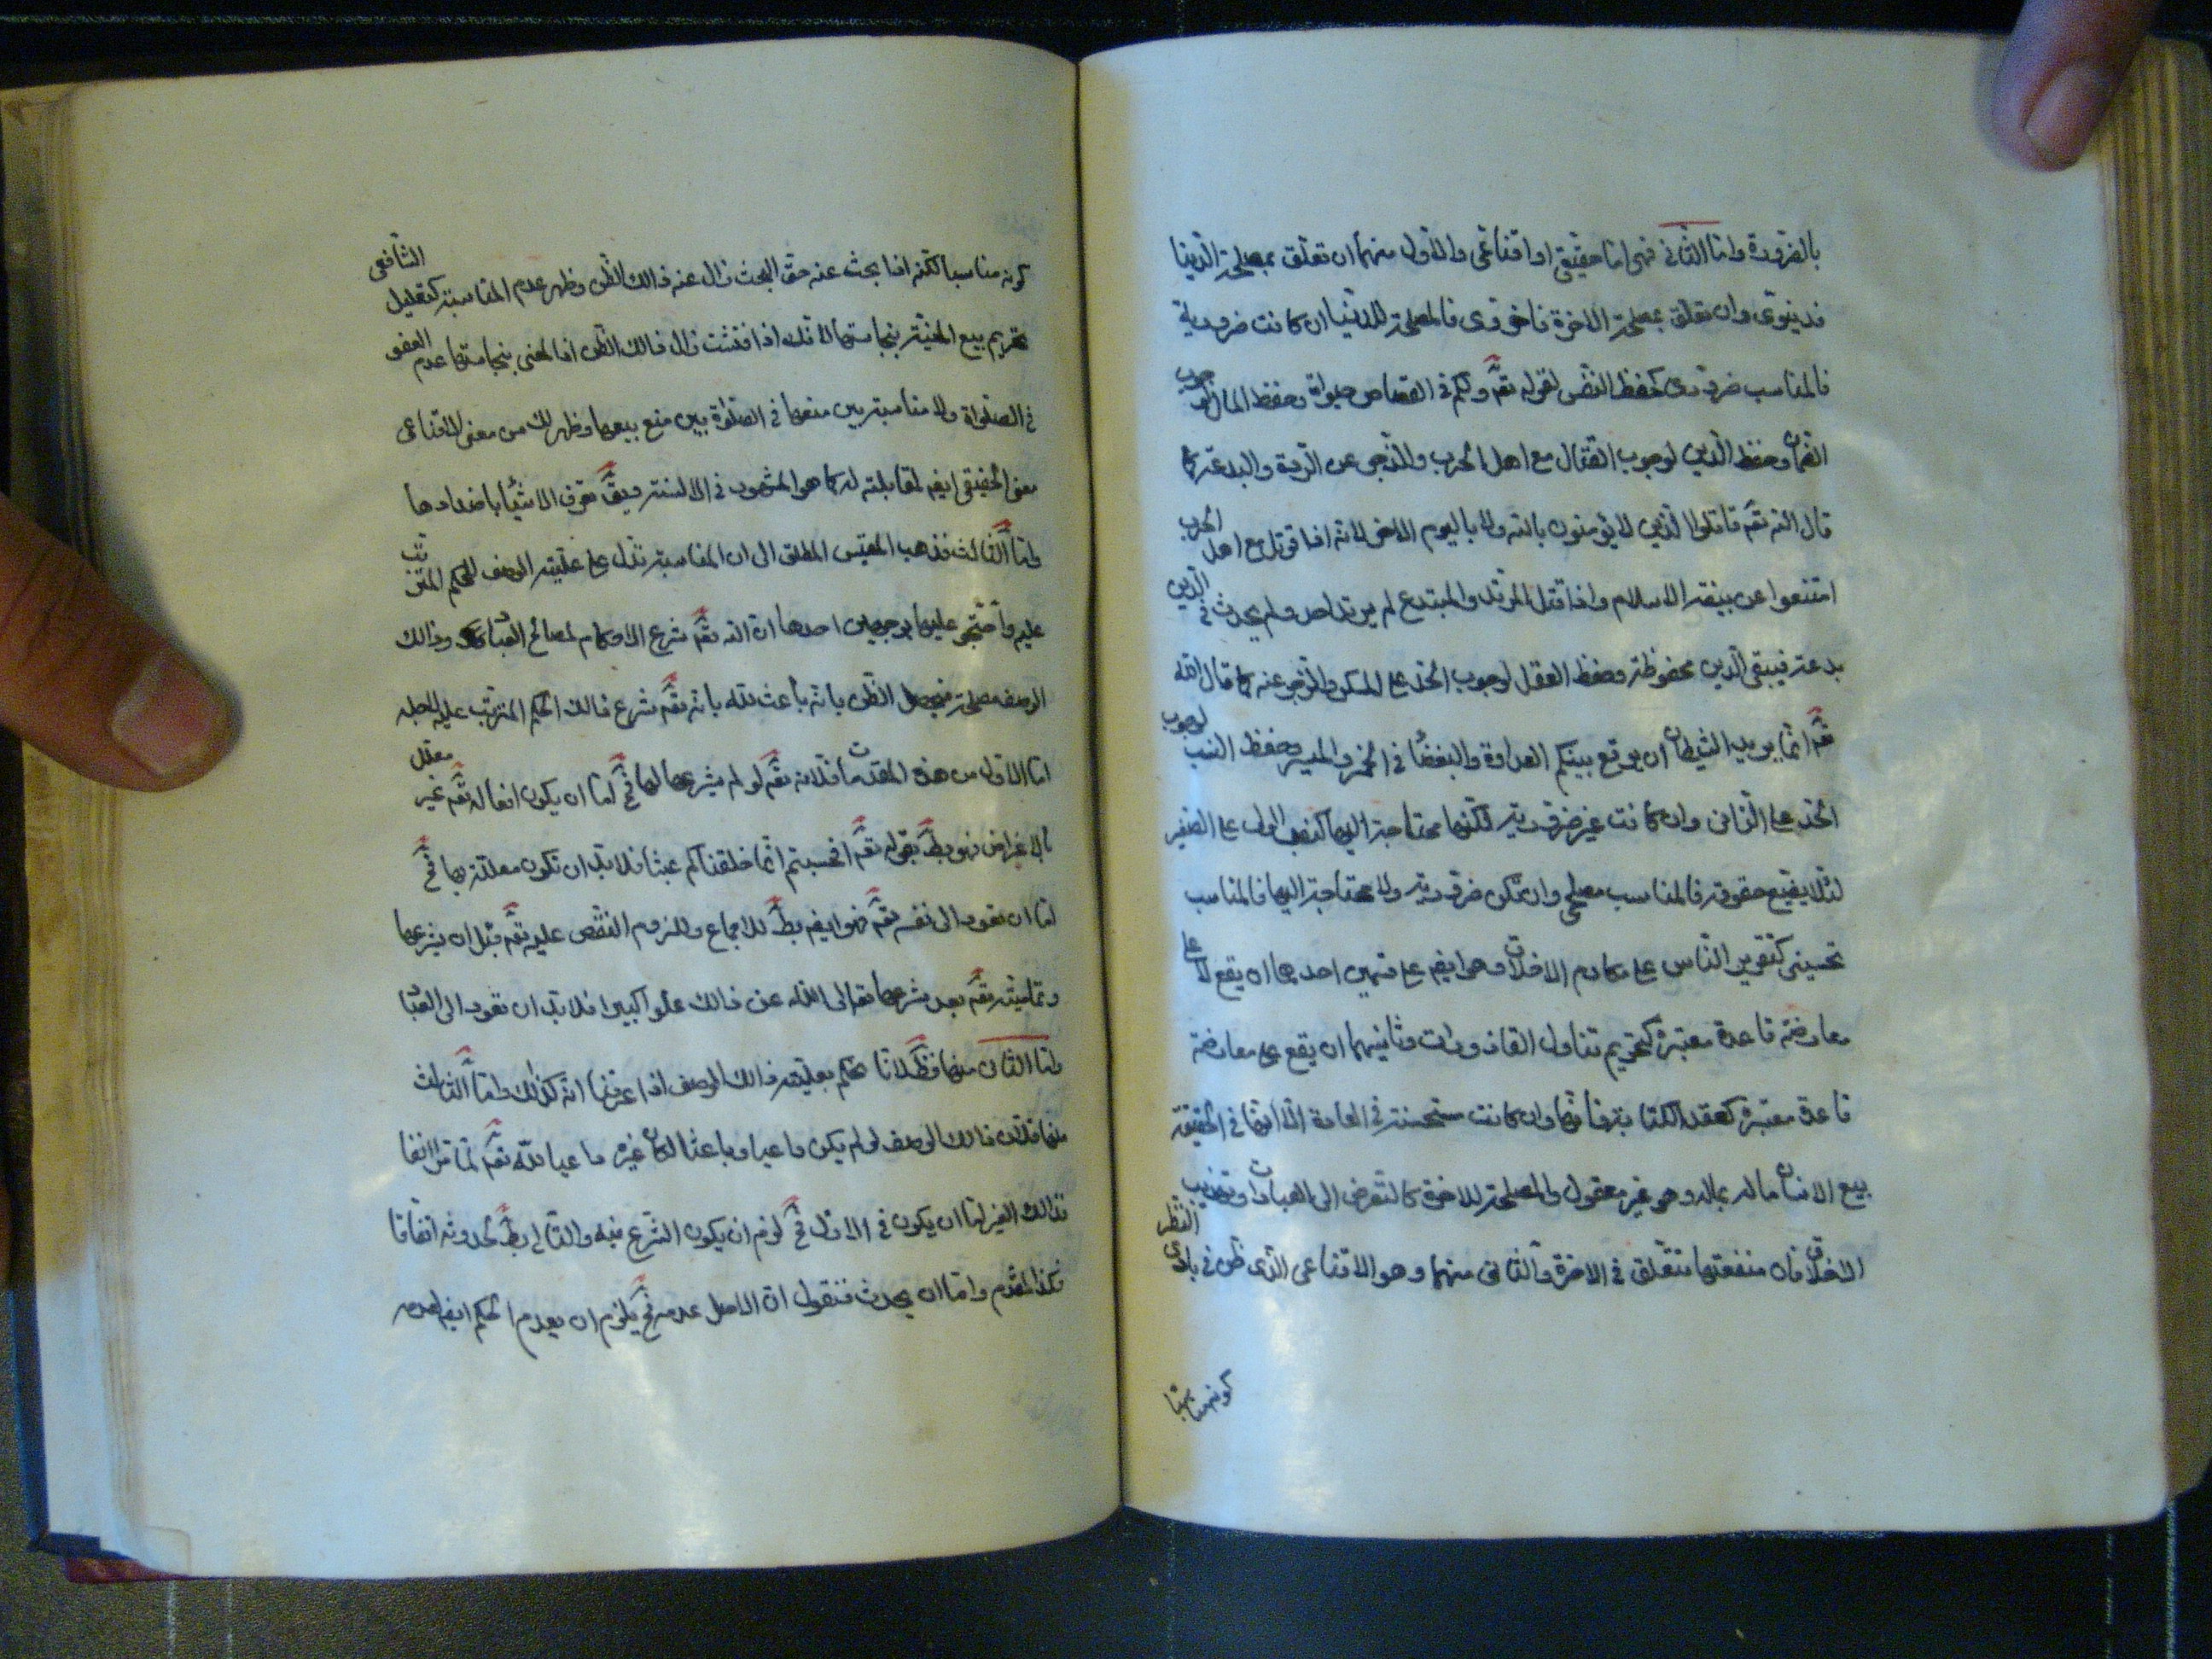 بالضرورة واما الثانى فهى اما حقيقى او اقناعى والاول منهما ان تعلق بمصلحة الدينا
فدينوى وان تعلق بمصلحة الاخرة فاخروى فالمصلحة للدنيا ان كانت ضرورية
فالمناسب ضرورى كحفظ النفس لقوله تعم ولكم فى القصاص حيواة وحفظ المال لوجوب
الضمان وحفظ الدين لوجوب القتال مع اهل الحرب والزجر عن الردة والبدعة كما
قال الله تعم قاتلوا الذين لا يؤمنون بالله ولا باليوم الاخر لانه اذا قوتل مع اهل الحرب
امتنعوا عن بيضة الاسلام واذا قتل المرتد والمبتدع لم يرتد احد ولم يحدث فى الدين
بدعة فيبقى الدين محفوظة وحفظ العقل لوجوب الحد على المسكر والزجر عنه كما قال الله
تعم انما يريد الشيطان ان يوقع بينكم العداوة والبغضاء فى الخمر والميسر وحفظ النسب لوجوب
الحد على الزانى وان كانت غير ضرورية لكنها محتاجة اليها كنصب الولى على الصغير
لئلا يضيع حقوقه فالمناسب مصلحى وان لم تكن ضرورية ولا محتاجة اليها فالمناسب
تحسينى كتقرير الناس على مكارم الاخلاق وهو ايضا على قسمين احدهما ان يقع لا على
معارضة قاعدة معتبرة كتحريم تناول القاذورات وثانيهما ان يقع على معارضة
قاعدة معتبرة كعقد الكتابة فانها وان كانت مستحسنة فى العادة الا انها فى الحقيقة
بيع الانسان ماله بماله وهو غير معقول والمصلحة للاخرة كالتعرض الى العبادات وتهذيب
الاخلاق فان منفعتها متعلق فى الاخرة والثانى منهما وهو الاقناعى الذى ظن فى بادى النظر
كونه مناسبا
كونه مناسبا لكنه اذا بحث عنه حق البحث زال عنه ذالك الظن وظهر عدم المناسبة كتعليل الشافعى
تحريم بيع الميتة بنجاستها لانك اذا فتشت زال ذالك الظن اذ المعنى بنجاستها عدم العفو
فى الصلواة ولا مناسبة بين منعها فى الصلواة بين منع بيعها وظهر لك من معنى الاقناعى
معنى الحقيقى ايضا لمقابلته له كما هو المشهور فى الالسنة ويق تعرف الاشياء باضدادها
واما الثالث فذهب المقيس المطلق الى ان المناسبة تدل على علية الوصف للحكم المترتب
عليه واحتج عليها بوجهين احدها ان الله تعم شرع الاحكام لمصالح العباد وذالك
الوصف مصلحة فيحصل الظن بانه باعث لله بانه تعم شرع ذالك الحكم المترتب عليه لاجله
اما الاول من هذه المقدمات فلانه تعم لو لم يشرعها لها فح اما ان يكون افعاله تعم غير معلل
بالاغراض فهو بط بقوله تعم افحسبتم انما خلقناكم عبثا فلابد ان تكون معللة بها فح
اما ان تعود الى نفسه تعم فهو ايضا بط للاجماع وللزوم النقص عليه تعم قبل ان يشرعها
وتماميته تعم بعد شرعها تعالى الله عن ذالك علوا كبيرا فلابد ان تعود الى العباد
واما الثانى منها فظ لانا نحكم بعلية ذالك الوصف اذا عرفنا انه كذالك واما الثالث
منها فلان ذالك الوصف لو لم يكن داعيا وباعثا لكان غيره داعيا لله تعم لما مر انفا
فذالك الغير اما ان يكون فى الاول فح لزم ان يكون الشرع فيه والتالى بط لحدوثه اتفاقا
فكذا المقدم واما ان يحدث فنقول ان الاصل عدمه فح يلزم ان يعدم الحكم ايضا لعدمه